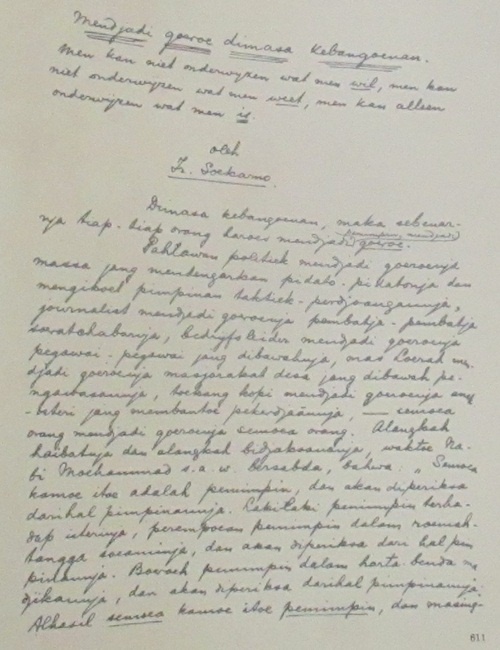 Mendjadi goeroe dimasa kebangoenan.
Men kan niet onderwijzen wat men wil, men kan
niet onderwijzen wat men weet, men kan alleen
onderwijzen wat men is.
oleh
Ir. Soekarno.
Dimasa kebangoenan, maka sebenar-
nja tiap-tiap orang haroes mendjadi pemimpin, mendjadi goeroe.
Pahlawan politiek mendjadi goeroenja
massa jang mendengarkan pidato-pidatonja dan
mengikoet pimpinan taktiek-perdjoangannja,
journalist mendjadi goeroenja pembatja-pembatja
soeratchabarnja, bedrijfsleider mendjadi goeroenja
pegawai-pegawai jang dibawahnja, mas Loerah men-
djadi goeroenja masjarakat desa jang dibawah pe-
ngawasannja, toekang kopi mendjadi goeroenja
-isteri jang membantoe pekerdjaännja, — semoea
orang mendjadi goeroenja semoea orang. Alangkah
haibatnja dan alangkah bidjaksananja, waktoe Na-
bi Mochammad s.a.w. bersabda, bahwa: „Semoea
kamoe itoe adalah pemimpin, dan akan diperiksa
darihal pimpinannja. Lakilaki pemimpin terha-
dap isterinja, perempoean pemimpin dalam roemah-
tangga soeaminja, dan akan diperiksa dari hal pim
pinannja. Boedjang pemimpin dalam harta-benda ma
djikannja, dan akan diperiksa darihal pimpinannja.
Alhasil semoea kamoe itoe pemimpin, dan masing-
611